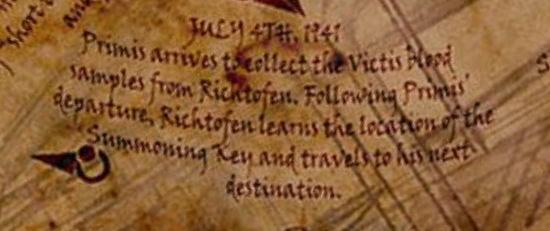 short-
and
JULY 4TH, 1941
Primis arrives to collect the Victis blood
samples from Richtofen. Following Primis'
departure, Richtofen learns the location of the
Summoning Key and travels to his next
destination.
S